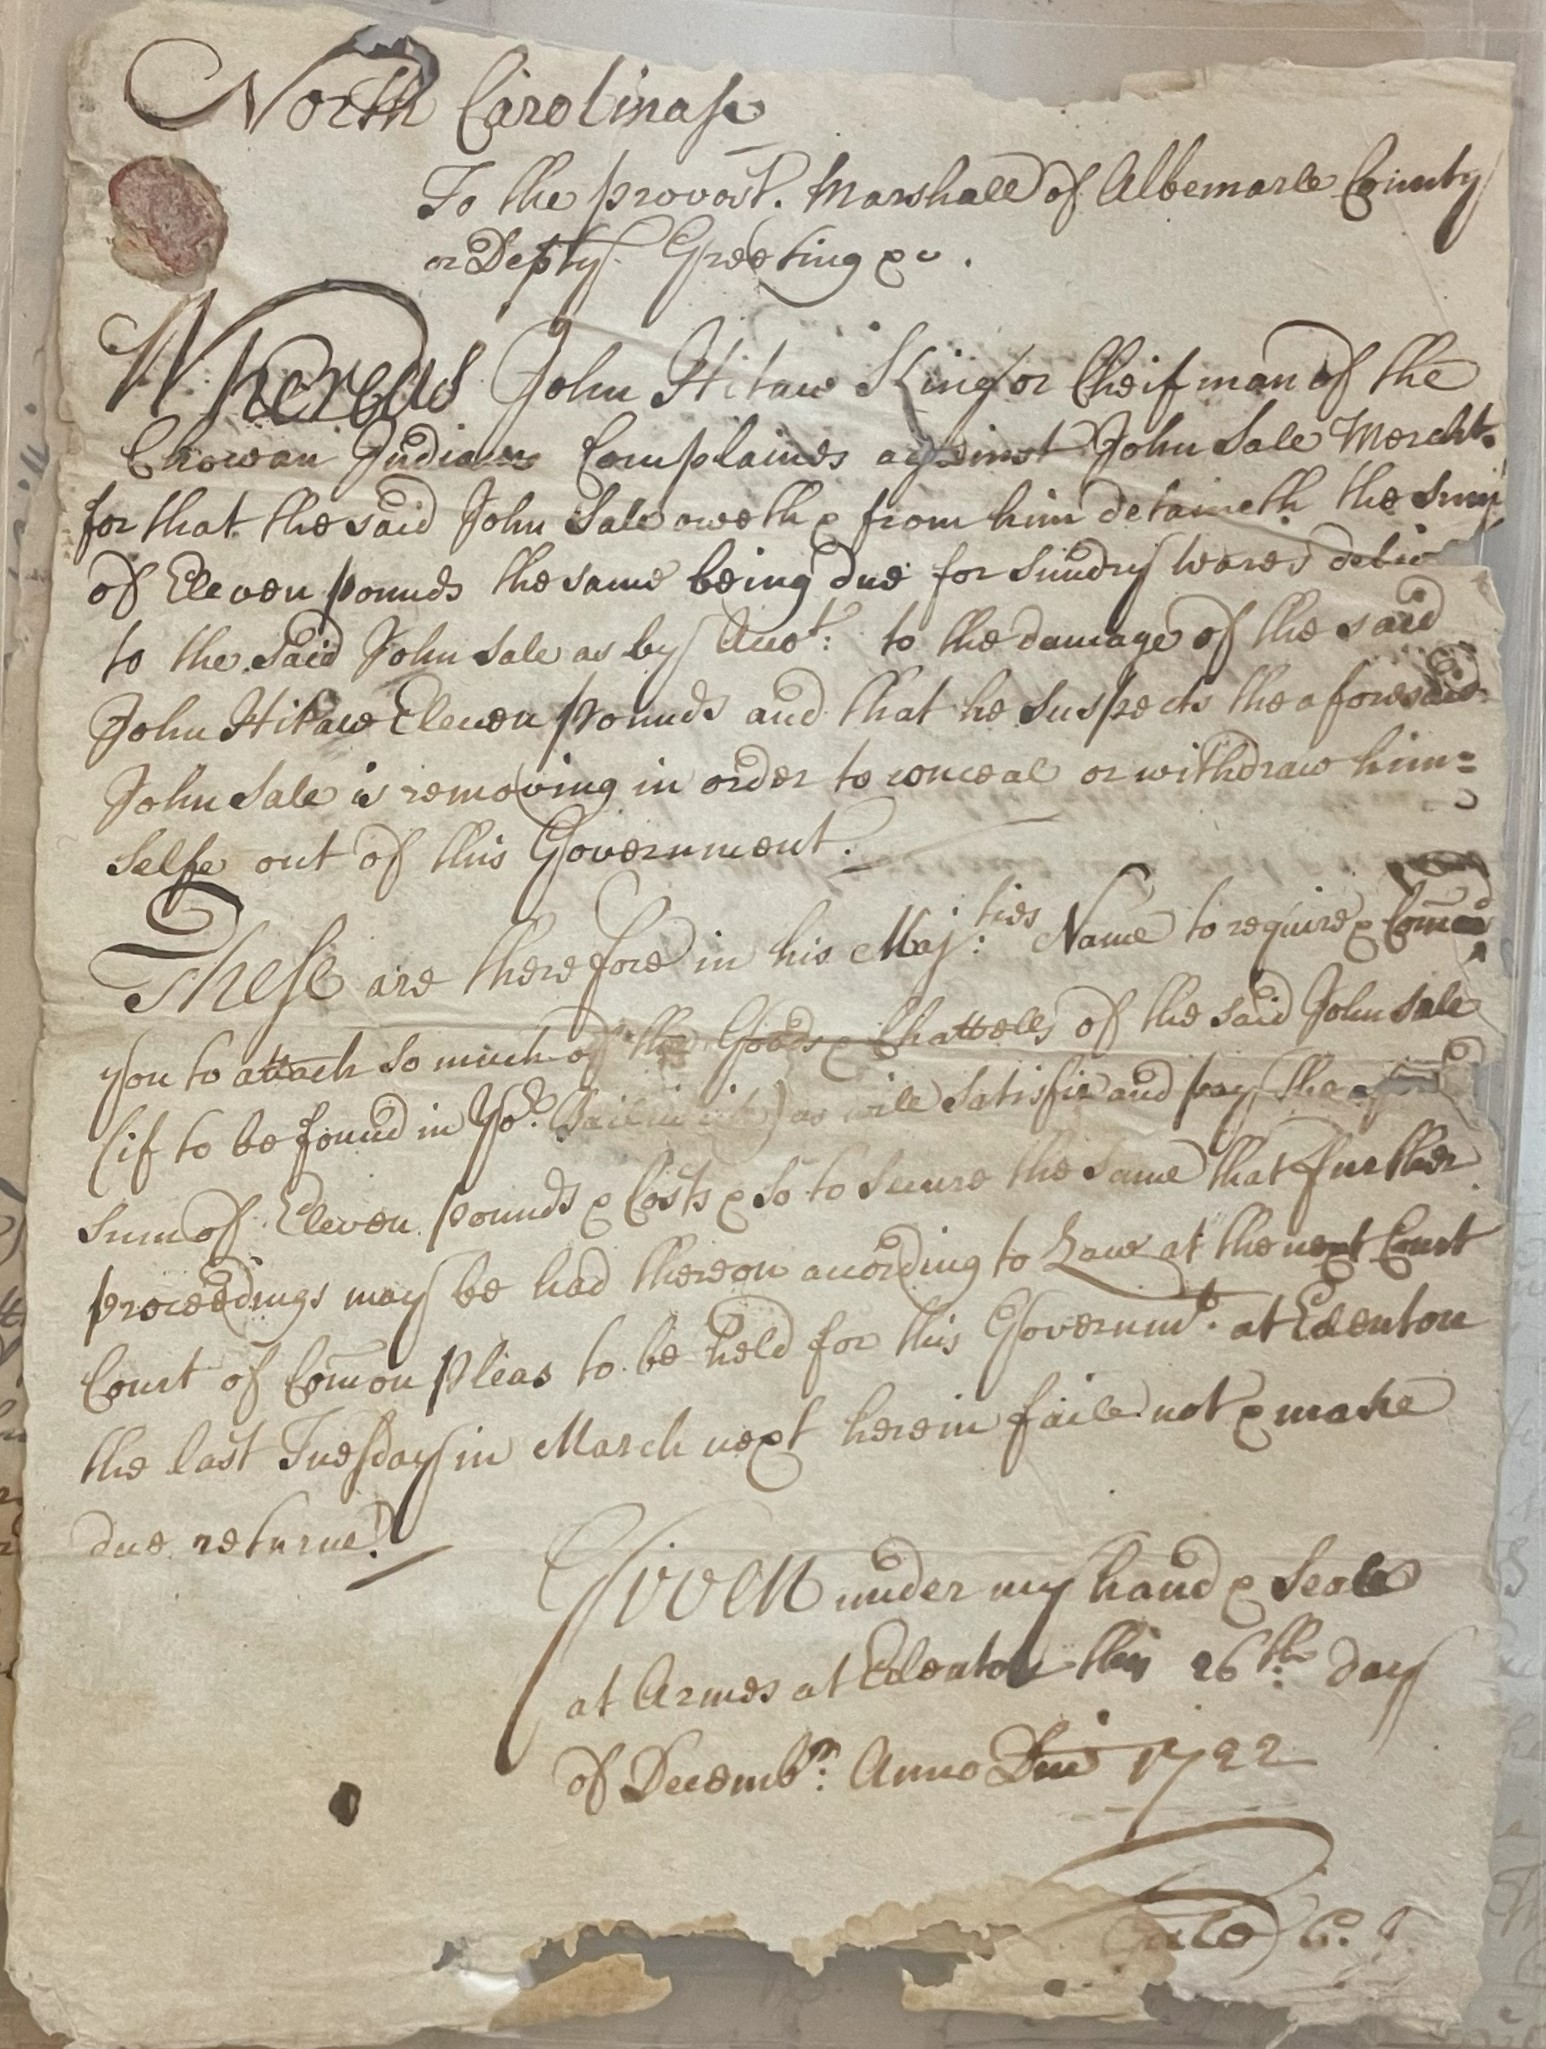 North Carolina ss
To the provost. Marshall of Albemarle County
or Depty. Greeting &c.
Whereas John Hitaw King or Cheif man of the
Chowan Indians Complaines against John Sale Mercht.
for that the said John Sale oweth & from him detaineth the Sum
of Eleven pounds the same being due for Sundry wares deliv
to the said John Sale as by Acco.t: to the damage of the said
John Hitaw Eleven pounds and that he Suspects the aforesaid
John Sale is removing in order to conceal or withdraw him=
Selfe out of this Government.
These are therefore in his Maj:ties Name to require & Comand
you to attach So much of the Goods & Chattells of the said John Sale
(if to be found in Yo.r Bailiwick) as will Satisfie and pay the afors
Sum of Eleven pounds & Costs & So to Secure the Same that further
proceedings may be had thereon acording to Law at the next Court
Court of Comon Pleas to be held for this Governmt. at Edenton
the last Tuesday in March next herein faile not & make
due returne.
Given under my hand & Seale
at Armes at Edenton this 26th: day
of Decembr: Anno Dni 1722
Gale C. J.